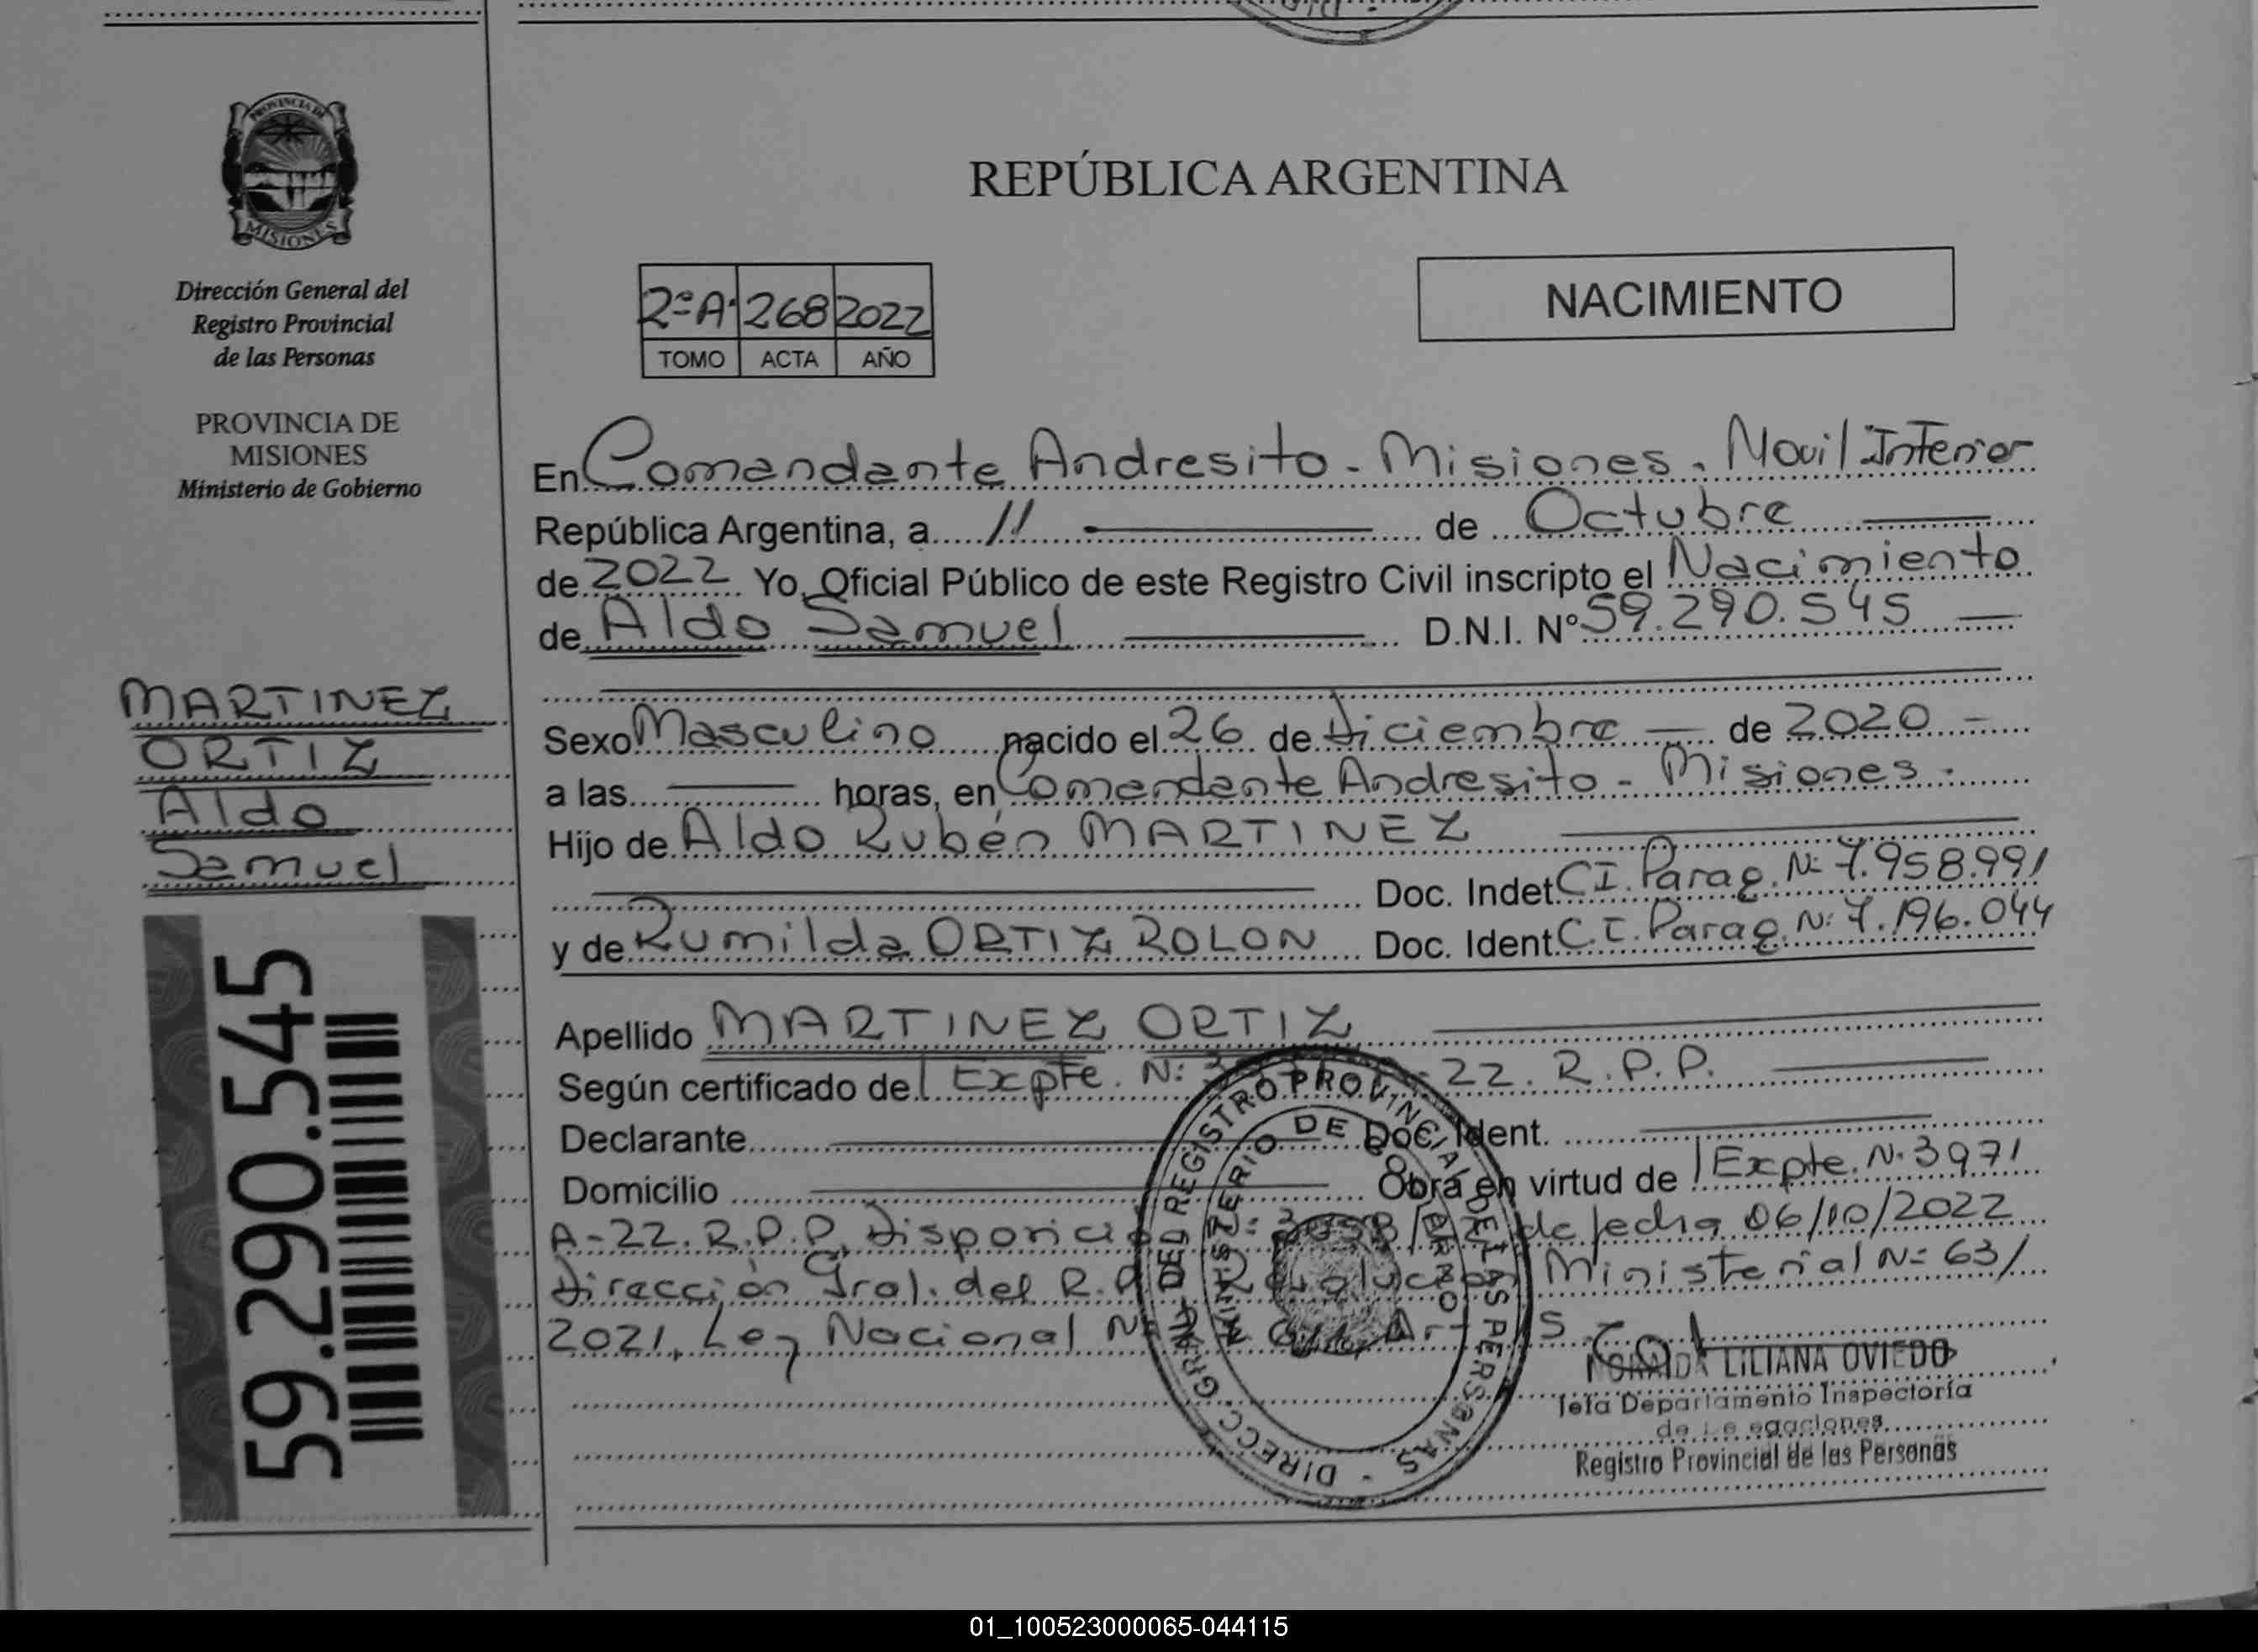 PROVINCIA DE
MISIONES
Dirección General del
Registro Provincial
de las Personas
PROVINCIA DE
MISIONES
Ministerio de Gobierno
MARTINEZ
ORTIZ
Aldo
Samuel
59.290.545
REPÚBLICA ARGENTINA
2º A. 268 2022
TOMO ACTA AÑO
NACIMIENTO
En Comandante Andresito - Misiones. Movil Interior
República Argentina, a 11 de Octubre
de 2022 Yo, Oficial Público de este Registro Civil inscripto el Nacimiento
de Aldo Samuel D.N.I. Nº 59.290.545
Sexo Masculino nacido el 26 de Diciembre de 2020
a las horas, en Comandante Andresito - Misiones -
Hijo de Aldo Rubén MARTINEZ
Doc. Indet C.I. Parag. Nº 7.958.991
y de Rumilda ORTIZ ROLON Doc. Ident C.I. Parag. Nº 7.196.044
Apellido MARTINEZ ORTIZ
Según certificado de Expte. Nº 22. R.P.P.
Declarante Doc. Ident.
Domicilio Obra en virtud de Expte. Nº 3971
A-22. R.P.P. de fecha 06/10/2022
Dirección Gral. del Ministerial Nº 63/
2021, Ley Nacional
DIRECC. GRAL. DEL REGISTRO PROVINCIAL DE LAS PERSONAS -
MINISTERIO DE GOBIERNO
LILIANA OVIEDO
Jefa Departamento Inspectoría
Registro Provincial de las Personas
01_100523000065-044115